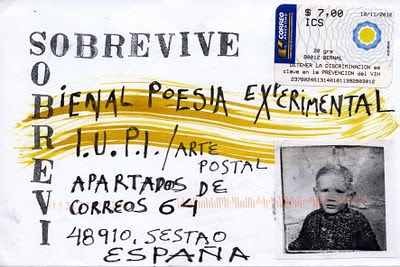 SOBREVIVE
SOBREVI
BIENAL POESIA EXPERIMENTAL
I.U.P.I. / ARTE
POSTAL
APARTADOS DE
CORREOS 64
48910, SESTAO
ESPAÑA
CORREO
ARGENTINO
$ 7,00
18/11/2010
ICS
20 gre
B0012 BERNAL
DETENER LA DISCRIMINACION es
clave en la PREVENCION del VIH